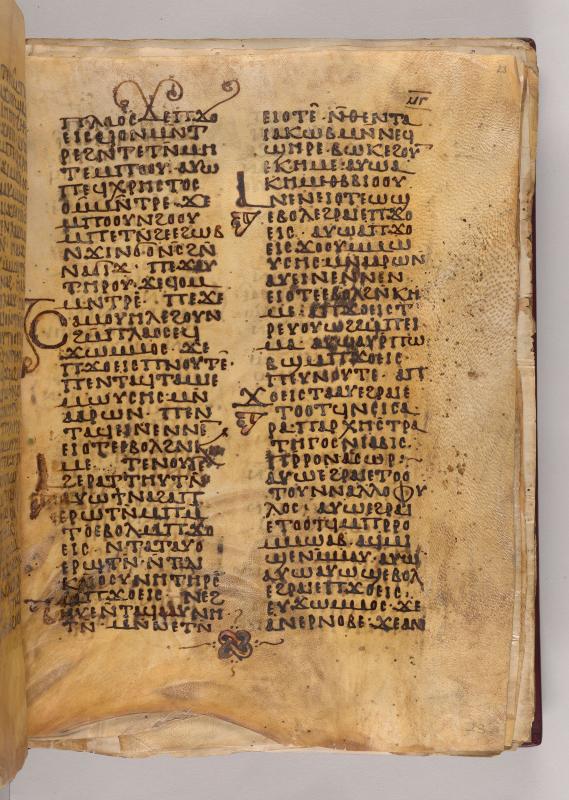 ⲡⲗⲁⲟⲥ ϫⲉⲡϫⲟ
ⲉⲓⲥ ϥⲟ ⲙⲙⲛⲧ
ⲣⲉ ϩⲛⲧⲉⲧⲛⲙⲏ
ⲧⲉ ⲙⲡⲟⲟⲩ· ⲁⲩⲱ
ⲡⲉϥⲭⲣⲏⲥⲧⲟⲥ
ⲟ ⲙⲙⲛⲧⲣⲉ· ϫⲉ
ⲙⲡⲟⲟⲩⲛϩⲟⲟⲩ
ⲙⲡⲉⲧⲛϩⲉⲉϩⲱⲃ
ⲛϫⲓⲛϭⲟⲛⲥ ϩⲛ
ⲛⲁϭⲓϫ· ⲡⲉϫⲁⲩ
ⲧⲏⲣⲟⲩ· ϫⲉϥⲟⲙ
ⲙⲛⲧⲣⲉ· ⲡⲉϫⲉ
ⲥⲁⲙⲟⲩⲏⲗ ⲉϩⲟⲩⲛ
ϩⲙⲡⲗⲁⲟⲥ ⲉϥ
ϫⲱⲙⲙⲟⲥ· ϫⲉ
ⲡϫⲟⲉⲓⲥ ⲡⲛⲟⲩⲧⲉ·
ⲡⲉⲛⲧⲁϥⲧⲁⲙⲓⲉ
ⲙⲱⲩⲥⲏⲥ ⲙⲛ
ⲁⲁⲣⲱⲛ· ⲡⲉⲛ
ⲧⲁϥⲉⲓⲛⲉ ⲛⲛⲉ
ⲉⲓⲟⲧⲉ ⲉⲃⲟⲗ ϩⲛⲕⲏ
ⲙⲉ· ⲧⲉⲛⲟⲩ ϭⲉ
ⲁϩⲉⲣⲁⲧⲧⲏⲩⲧⲛ
ⲁⲩⲱ ϯⲛⲁϩⲁⲡ
ⲉⲣⲱⲧⲛ ⲙⲡⲙ
ⲧⲟ ⲉⲃⲟⲗ ⲙⲡϫⲟ
ⲉⲓⲥ· ⲛⲧⲁⲧⲁⲩⲟ
ⲉⲣⲱⲧⲛ ⲛⲧⲇⲓ
ⲕⲁⲓⲟⲥⲩⲛⲏ ⲧⲏⲣⲥ
ⲙⲡϫⲟⲉⲓⲥ· ⲛⲉϩ
ⲃⲏⲩⲉ ⲛⲧⲁϥⲁⲁⲩ ⲛⲏ
ⲧⲛ ⲙⲛⲛⲉⲧⲛ
ⲙⲅ
ⲉⲓⲟⲧⲉ· ⲛⲑⲉ ⲛⲧⲁ
ⲓⲁⲕⲱⲃ ⲙⲛⲛⲉϥ
ϣⲏⲣⲉ· ⲃⲱⲕ ⲉϩⲟⲩ
ⲉⲕⲏⲙⲉ· ⲁⲩⲱ ⲁ
ⲕⲏⲙⲉ ⲑⲃⲃⲓⲟⲟⲩ
ⲁⲛⲉⲛⲉⲓⲟⲧⲉ ⲱϣ
ⲉⲃⲟⲗ ⲉϩⲣⲁⲓ ⲉⲡϫⲟ
ⲉⲓⲥ· ⲁⲩⲱ ⲁⲡϫⲟ
ⲉⲓⲥ ϫⲟⲟⲩ ⲙⲙⲱ
ⲩⲥⲏⲥ ⲙⲛⲁⲁⲣⲱⲛ
ⲁⲩⲉⲓⲛⲉ ⲛⲛⲉⲛ
ⲉⲓⲟⲧⲉ ⲉⲃⲟⲗ ϩⲛⲕⲏ
ⲙⲉ· ⲁⲡϫⲟⲉⲓⲥ ⲧ
ⲣⲉⲩⲟⲩⲱϩ ϩⲙⲡⲉⲓ
ⲙⲁ· ⲁⲩⲱ ⲁⲩⲣⲡⲱ
ⲃϣ ⲙⲡϫⲟⲉⲓⲥ
ⲡⲉⲩⲛⲟⲩⲧⲉ· ⲁⲡ
ϫⲟⲉⲓⲥ ⲧⲁⲁⲩ ⲉϩⲣⲁⲓ ⲉ
ⲧⲟⲟⲧϥ ⲛⲥⲓⲥⲁ
ⲣⲁ ⲡⲁⲣⲭⲏⲥⲧⲣⲁ
ⲧⲏⲅⲟⲥ ⲛⲓⲁⲃⲓⲥ·
ⲡⲣⲣⲟ ⲛⲁⲥⲱⲣ·
ⲁⲩⲱ ⲉϩⲣⲁⲓ ⲉⲧⲟⲟ
ⲧⲟⲩ ⲛⲛⲁⲗⲗⲟⲫⲩ
ⲗⲟⲥ· ⲁⲩⲱ ⲉϩⲣⲁⲓ
ⲉⲧⲟⲟⲧϥ ⲙⲡⲣⲣⲟ
ⲙⲙⲱⲁⲃ· ⲁϥⲙⲓ
ϣⲉ ⲛⲙⲙⲁⲩ· ⲁⲩⲱ
ⲁⲩⲱ ⲁⲩⲱϣ ⲉⲃⲟⲗ
ⲉϩⲣⲁⲓ ⲉⲡϫⲟⲉⲓⲥ·
ⲉⲩϫⲱⲙⲙⲟⲥ· ϫⲉ
ⲁⲛⲉⲣⲛⲟⲃⲉ· ϫⲉⲁⲛ